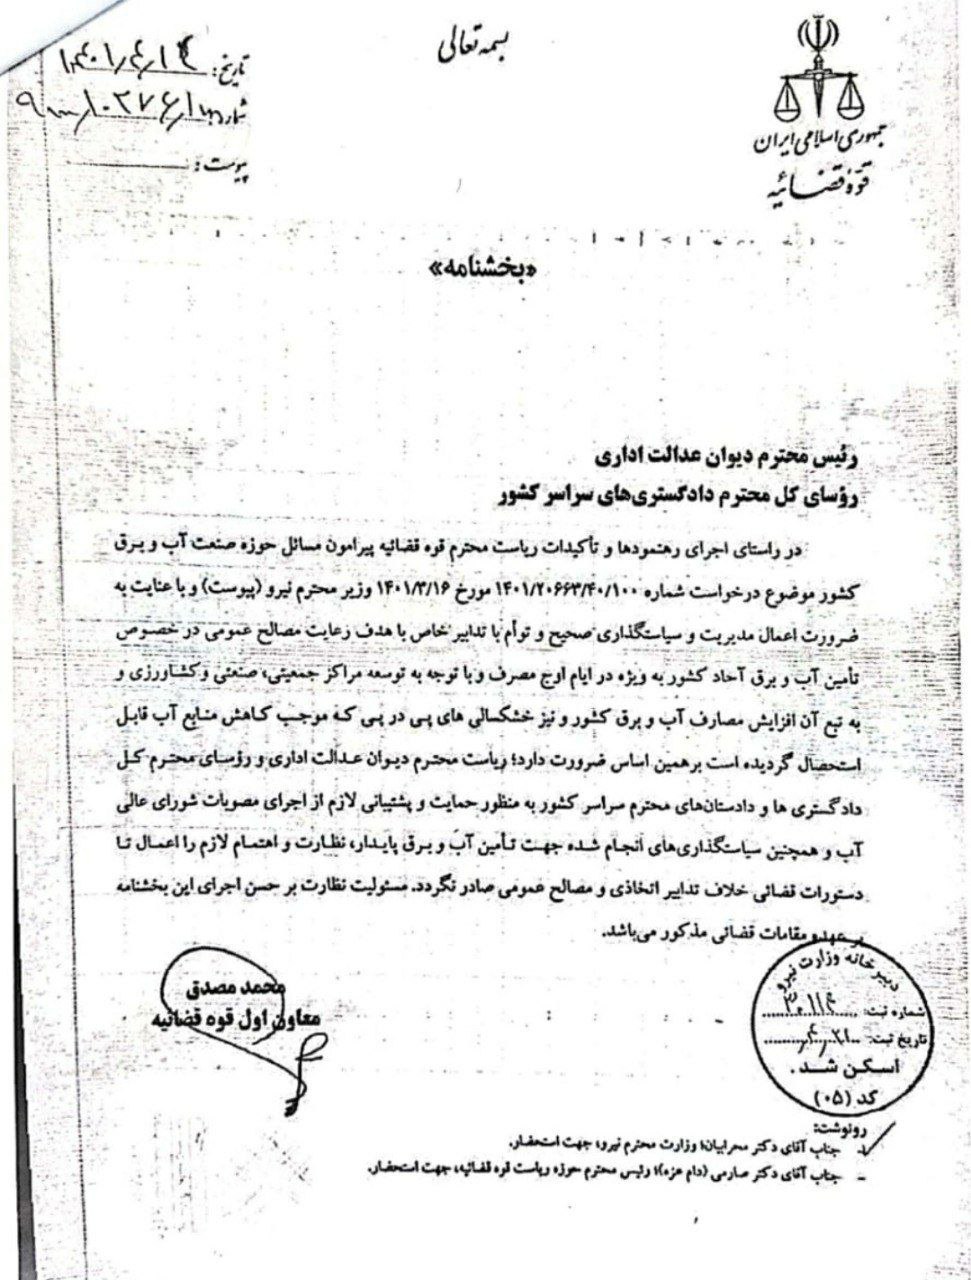 بسمه تعالی
جمهوری اسلامی ایران
قوه قضائیه
تاریخ: ۱۴۰۱/۴/۱۴
شماره:
پیوست:
«بخشنامه»
رئیس محترم دیوان عدالت اداری
رؤسای کل محترم دادگستری‌های سراسر کشور
در راستای اجرای رهنمودها و تأکیدات ریاست محترم قوه قضائیه پیرامون مسائل حوزه صنعت آب و برق
کشور موضوع درخواست شماره ۱۴۰۱/۲۰۶۶۳/۴۰/۱۰۰ مورخ ۱۴۰۱/۳/۱۶ وزیر محترم نیرو (پیوست) و با عنایت به
ضرورت اعمال مدیریت و سیاستگذاری صحیح و توأم با تدابیر خاص با هدف رعایت مصالح عمومی در خصوص
تأمین آب و برق آحاد کشور به ویژه در ایام اوج مصرف و با توجه به توسعه مراکز جمعیتی، صنعتی وکشاورزی و
به تبع آن افزایش مصارف آب و برق کشور و نیز خشکسالی های پی در پی که موجب کاهش منابع آب قابل
استحصال گردیده است برهمین اساس ضرورت دارد؛ ریاست محترم دیوان عدالت اداری و رؤسای محترم کل
دادگستری ها و دادستان‌های محترم سراسر کشور به منظور حمایت و پشتیبانی لازم از اجرای مصوبات شورای عالی
آب و همچنین سیاستگذاری‌های انجام شده جهت تأمین آب و برق پایدار، نظارت و اهتمام لازم را اعمال تا
دستورات قضائی خلاف تدابیر اتخاذی و مصالح عمومی صادر نگردد. مسئولیت نظارت بر حسن اجرای این بخشنامه
بر عهده مقامات قضائی مذکور می‌باشد.
محمد مصدق
معاون اول قوه قضائیه
دبیرخانه وزارت نیرو
شماره ثبت:
تاریخ ثبت:
اسکن شد.
کد (۰۵)
رونوشت:
- جناب آقای دکتر محرابیان؛ وزارت محترم نیرو، جهت استحضار.
- جناب آقای دکتر صارمی (دام عزه)؛ رئیس محترم حوزه ریاست قوه قضائیه، جهت استحضار.